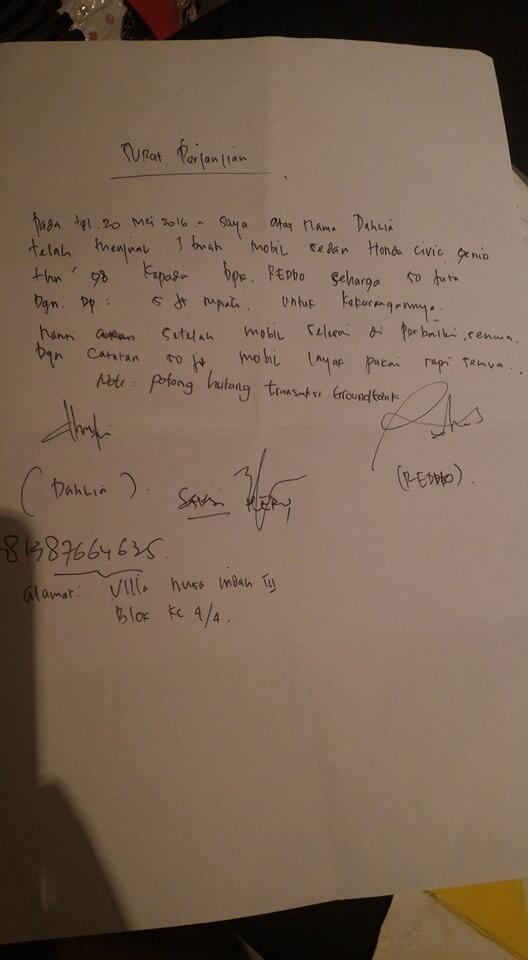 SURAT Perjanjian
Pada tgl. 20 Mei 2016 - saya atas nama Dahlia
telah menjual 1 buah mobil sedan Honda Civic genio
thn' 98 kepada bpk. REDDO seharga 50 juta
Dgn. Dp : 5 jt rupiah. untuk kekurangannya.
nanti setelah mobil selesai di perbaiki semua.
Dgn catatan 50 jt mobil layak pakai rapi semua..
Note : potong hutang transaksi Groundtank
(Dahlia). SAKSI HERI (REDDO).
81387664635.
alamat: Villa nusa indah III
Blok KC 4/4.